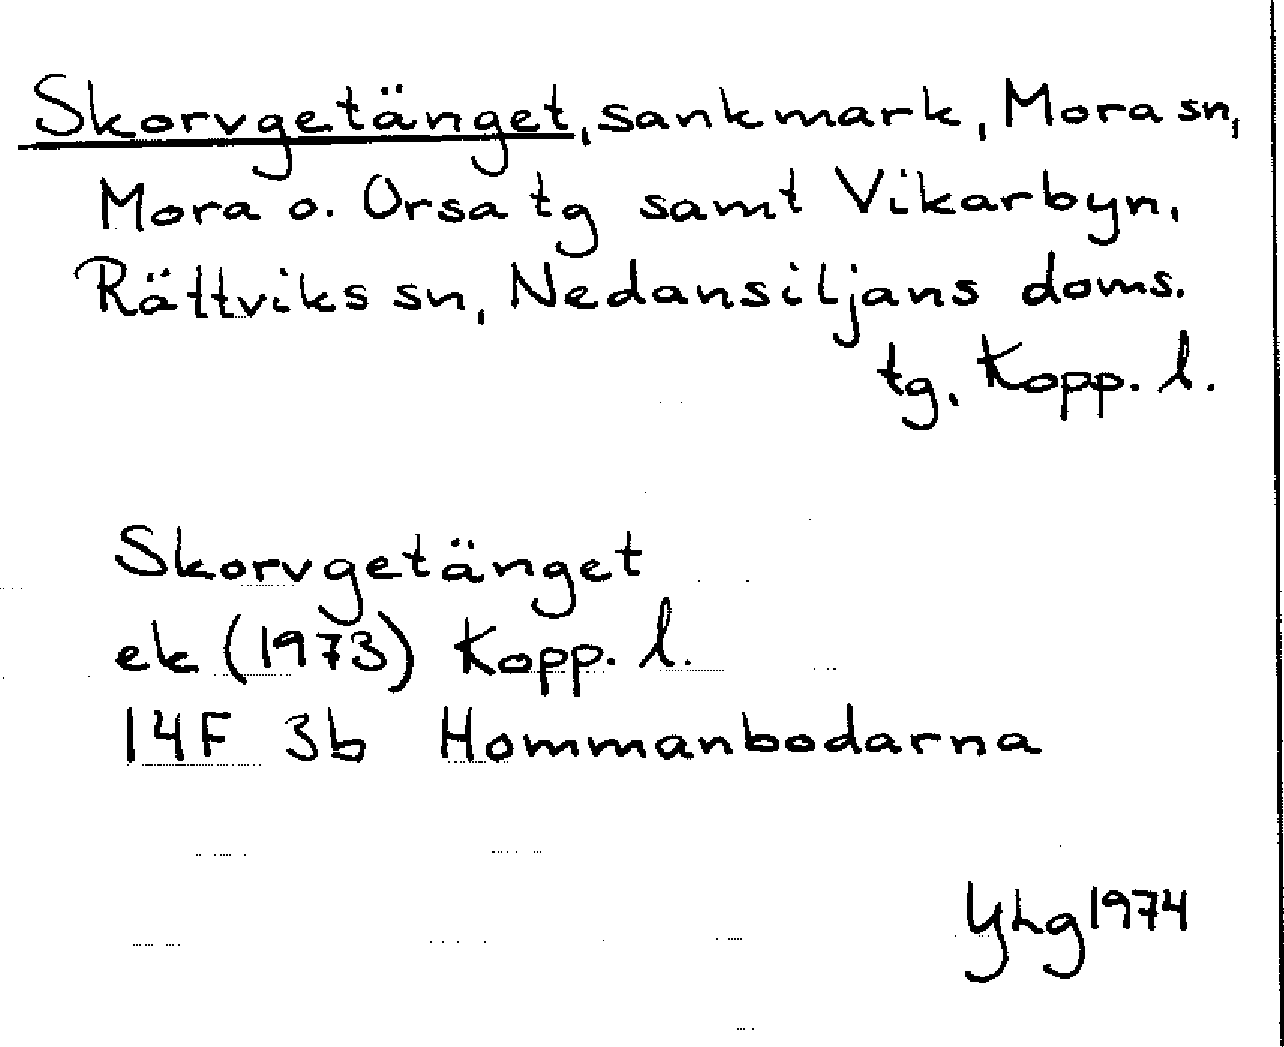 Skorvgetänget, sankmark, Mora sn,
Mora o. Orsa tg samt Vikarbyn,
Rättviks sn, Nedansiljans doms.
tg, Kopp. l.
Skorvgetänget
ek (1973) Kopp. l.
14F 3b Hommanbodarna
YLg 1974